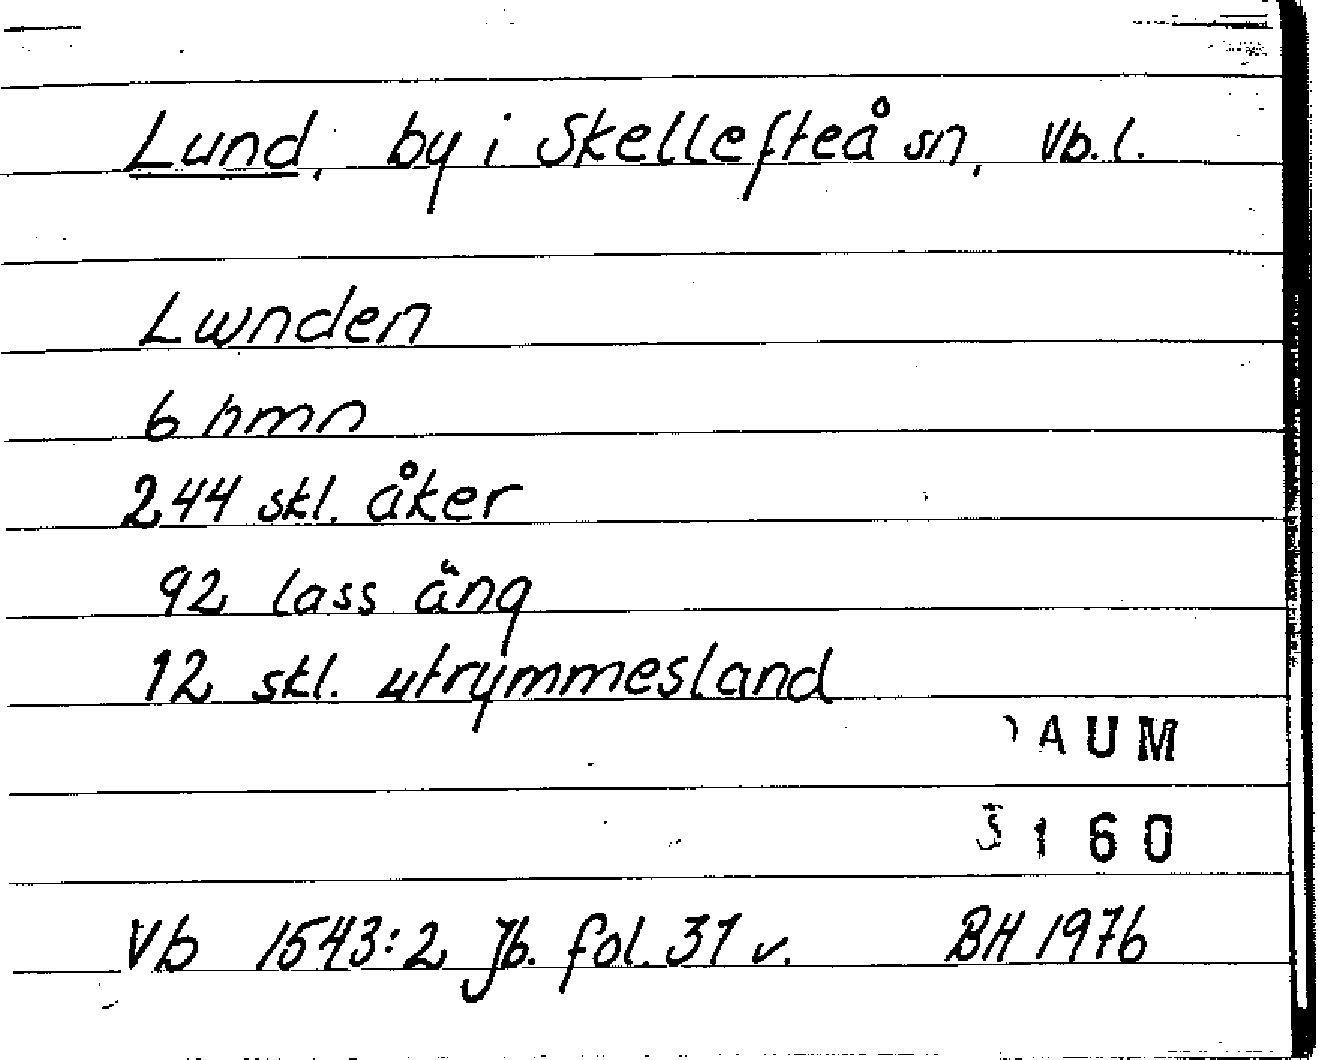 Lund, by i Skellefteå sn, Vb. l.
Lwnden
6 hmn
244 skl. åker
92 lass äng
12 skl. utrymmesland
DAUM
3160
Vb 1543:2 Jb. fol. 31 v. BH 1976